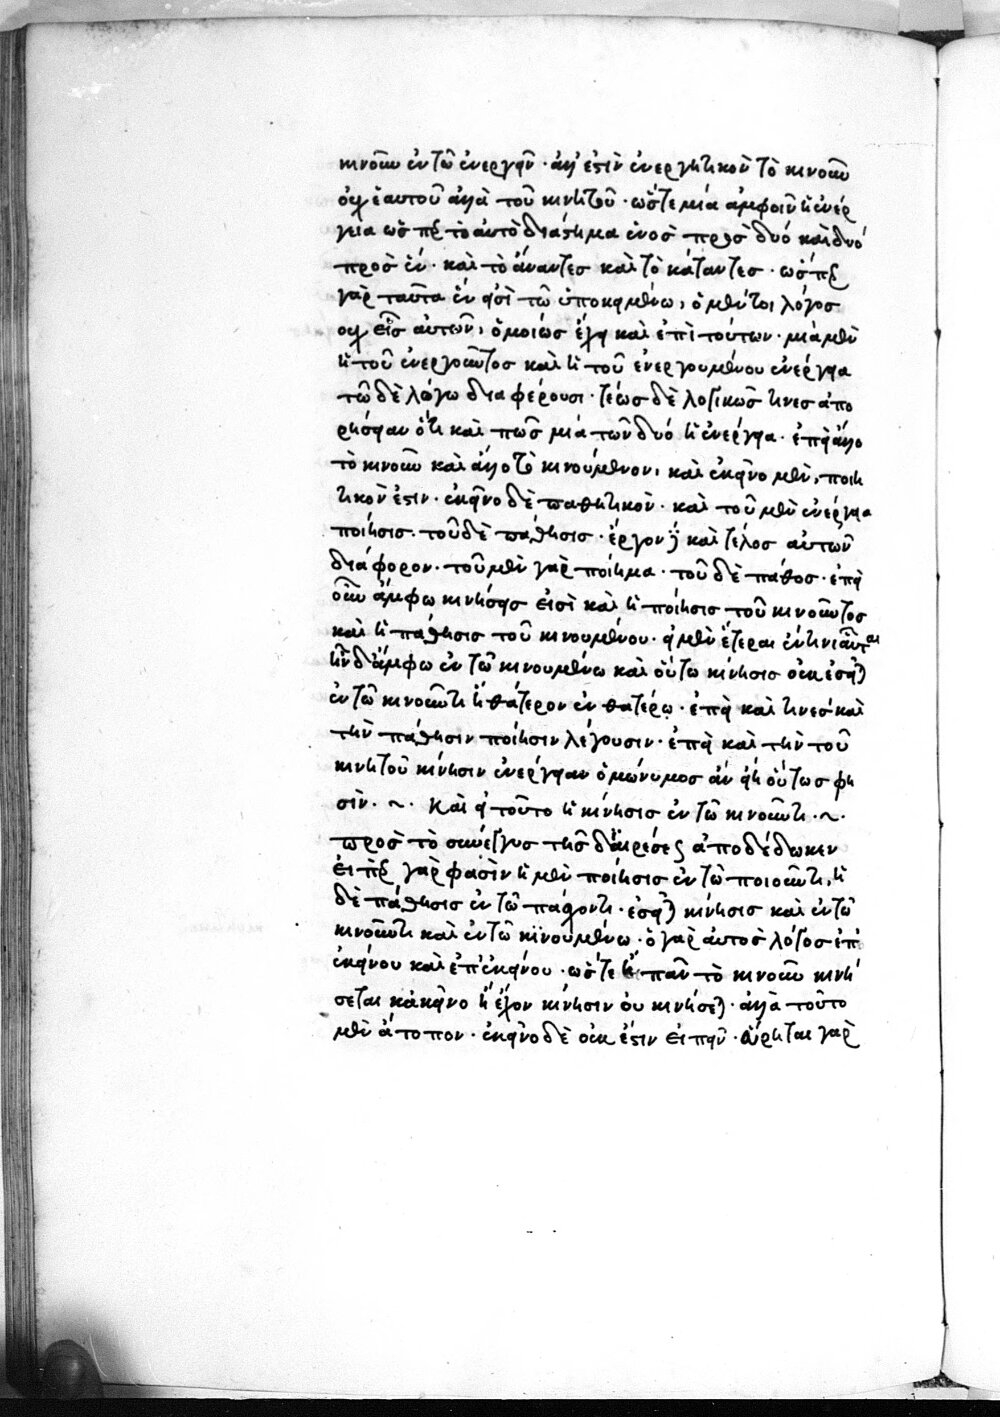 κινοῦν ἐν τῶ ἐνεργεῖν · ἀλλ' ἐστὶν ἐνεργητικὸν τὸ κινοῦν
οὐχ ἑαυτοῦ ἀλλὰ τοῦ κινητοῦ · ὥστε μία ἀμφοῖν ἡ ἐνέρ
γεια ὥσπερ τὸ αὐτὸ διάστημα ἑνὸς πρὸς δύο καὶ δύο
πρὸς ἓν · καὶ τὸ ἄναντες καὶ τὸ κάταντες · ὥσπερ
γὰρ ταῦτα ἕν εἰσὶ τῶ ὑποκειμένω, ὁ μέντοι λόγος
οὐχ εἷς αὐτῶν, ὁμοίως ἔχει καὶ ἐπὶ τούτων · μία μὲν
ἡ τοῦ ἐνεργοῦντος καὶ ἡ τοῦ ἐνεργουμένου ἐνέργεια
τῶ δὲ λόγω διαφέρουσι · τέως δὲ λογικῶς τινες ἀπο
ρήσειαν ὅτι καὶ πῶς μία τῶν δύο ἡ ἐνέργεια · ἐπεὶ ἄλλο
τὸ κινοῦν καὶ ἄλλο τὸ κινούμενον, καὶ ἐκεῖνο μὲν, ποιη
τικὸν ἐστιν · ἐκεῖνο δὲ παθητικὸν · καὶ τοῦ μὲν ἐνέργεια
ποίησις · τοῦ δὲ πάθησις · ἔργον καὶ τέλος αὐτῶν
διάφορον · τοῦ μὲν γὰρ ποίημα · τοῦ δὲ πάθος · ἐπεὶ
οὖν ἄμφω κινήσεις εἰσὶ καὶ ἡ ποίησις τοῦ κινοῦντος
καὶ ἡ πάθησις τοῦ κινουμένου · εἰ μὲν ἕτεραι ἐν τίνι αὗται
ἢ δ' ἄμφω ἐν τῶ κινουμένω καὶ οὕτω κίνησις οὐκ ἔσται
ἐν τῶ κινοῦντι ἢ θάτερον ἐν θατέρω · ἐπεὶ καὶ τινες καὶ
τὴν πάθησιν ποίησιν λέγουσιν · ἐπεὶ καὶ τὴν τοῦ
κινητοῦ κίνησιν ἐνέργειαν ὁμώνυμος ἂν εἴη οὕτως φη
σίν · ~ · Καὶ εἰ τοῦτο ἡ κίνησις ἐν τῶ κινοῦντι · ~ ·
πρὸς τὸ σύνεγγυς τῆς διαιρέσεως ἀποδέδωκεν
εἴπερ γὰρ φασὶν ἡ μὲν ποίησις ἐν τῶ ποιοῦντι, ἡ
δὲ πάθησις ἐν τῶ πάσχοντι · ἔσται κίνησις καὶ ἐν τῶ
κινοῦντι καὶ ἐν τῶ κινουμένω · ὁ γὰρ αὐτὸς λόγος ἐπ'
ἐκείνου καὶ ἐπ' ἐκείνου · ὥστε ἢ πᾶν τὸ κινοῦν κινή
σεται κἀκεῖνο ἢ ἔχον κίνησιν οὐ κινήσεται · ἀλλὰ τοῦτο
μὲν ἄτοπον · ἐκεῖνο δὲ οὐκ ἔστιν εἰπεῖν · εἴρηται γὰρ